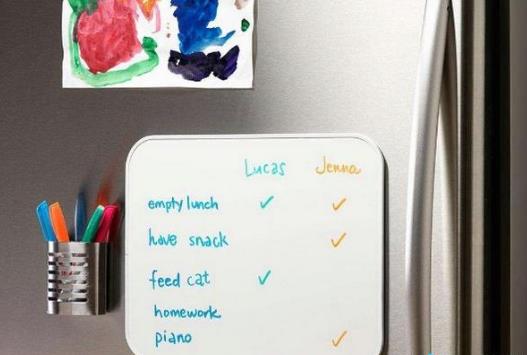 Lucas Jenna
empty lunch ✓ ✓
have snack ✓
feed cat ✓
homework
piano ✓